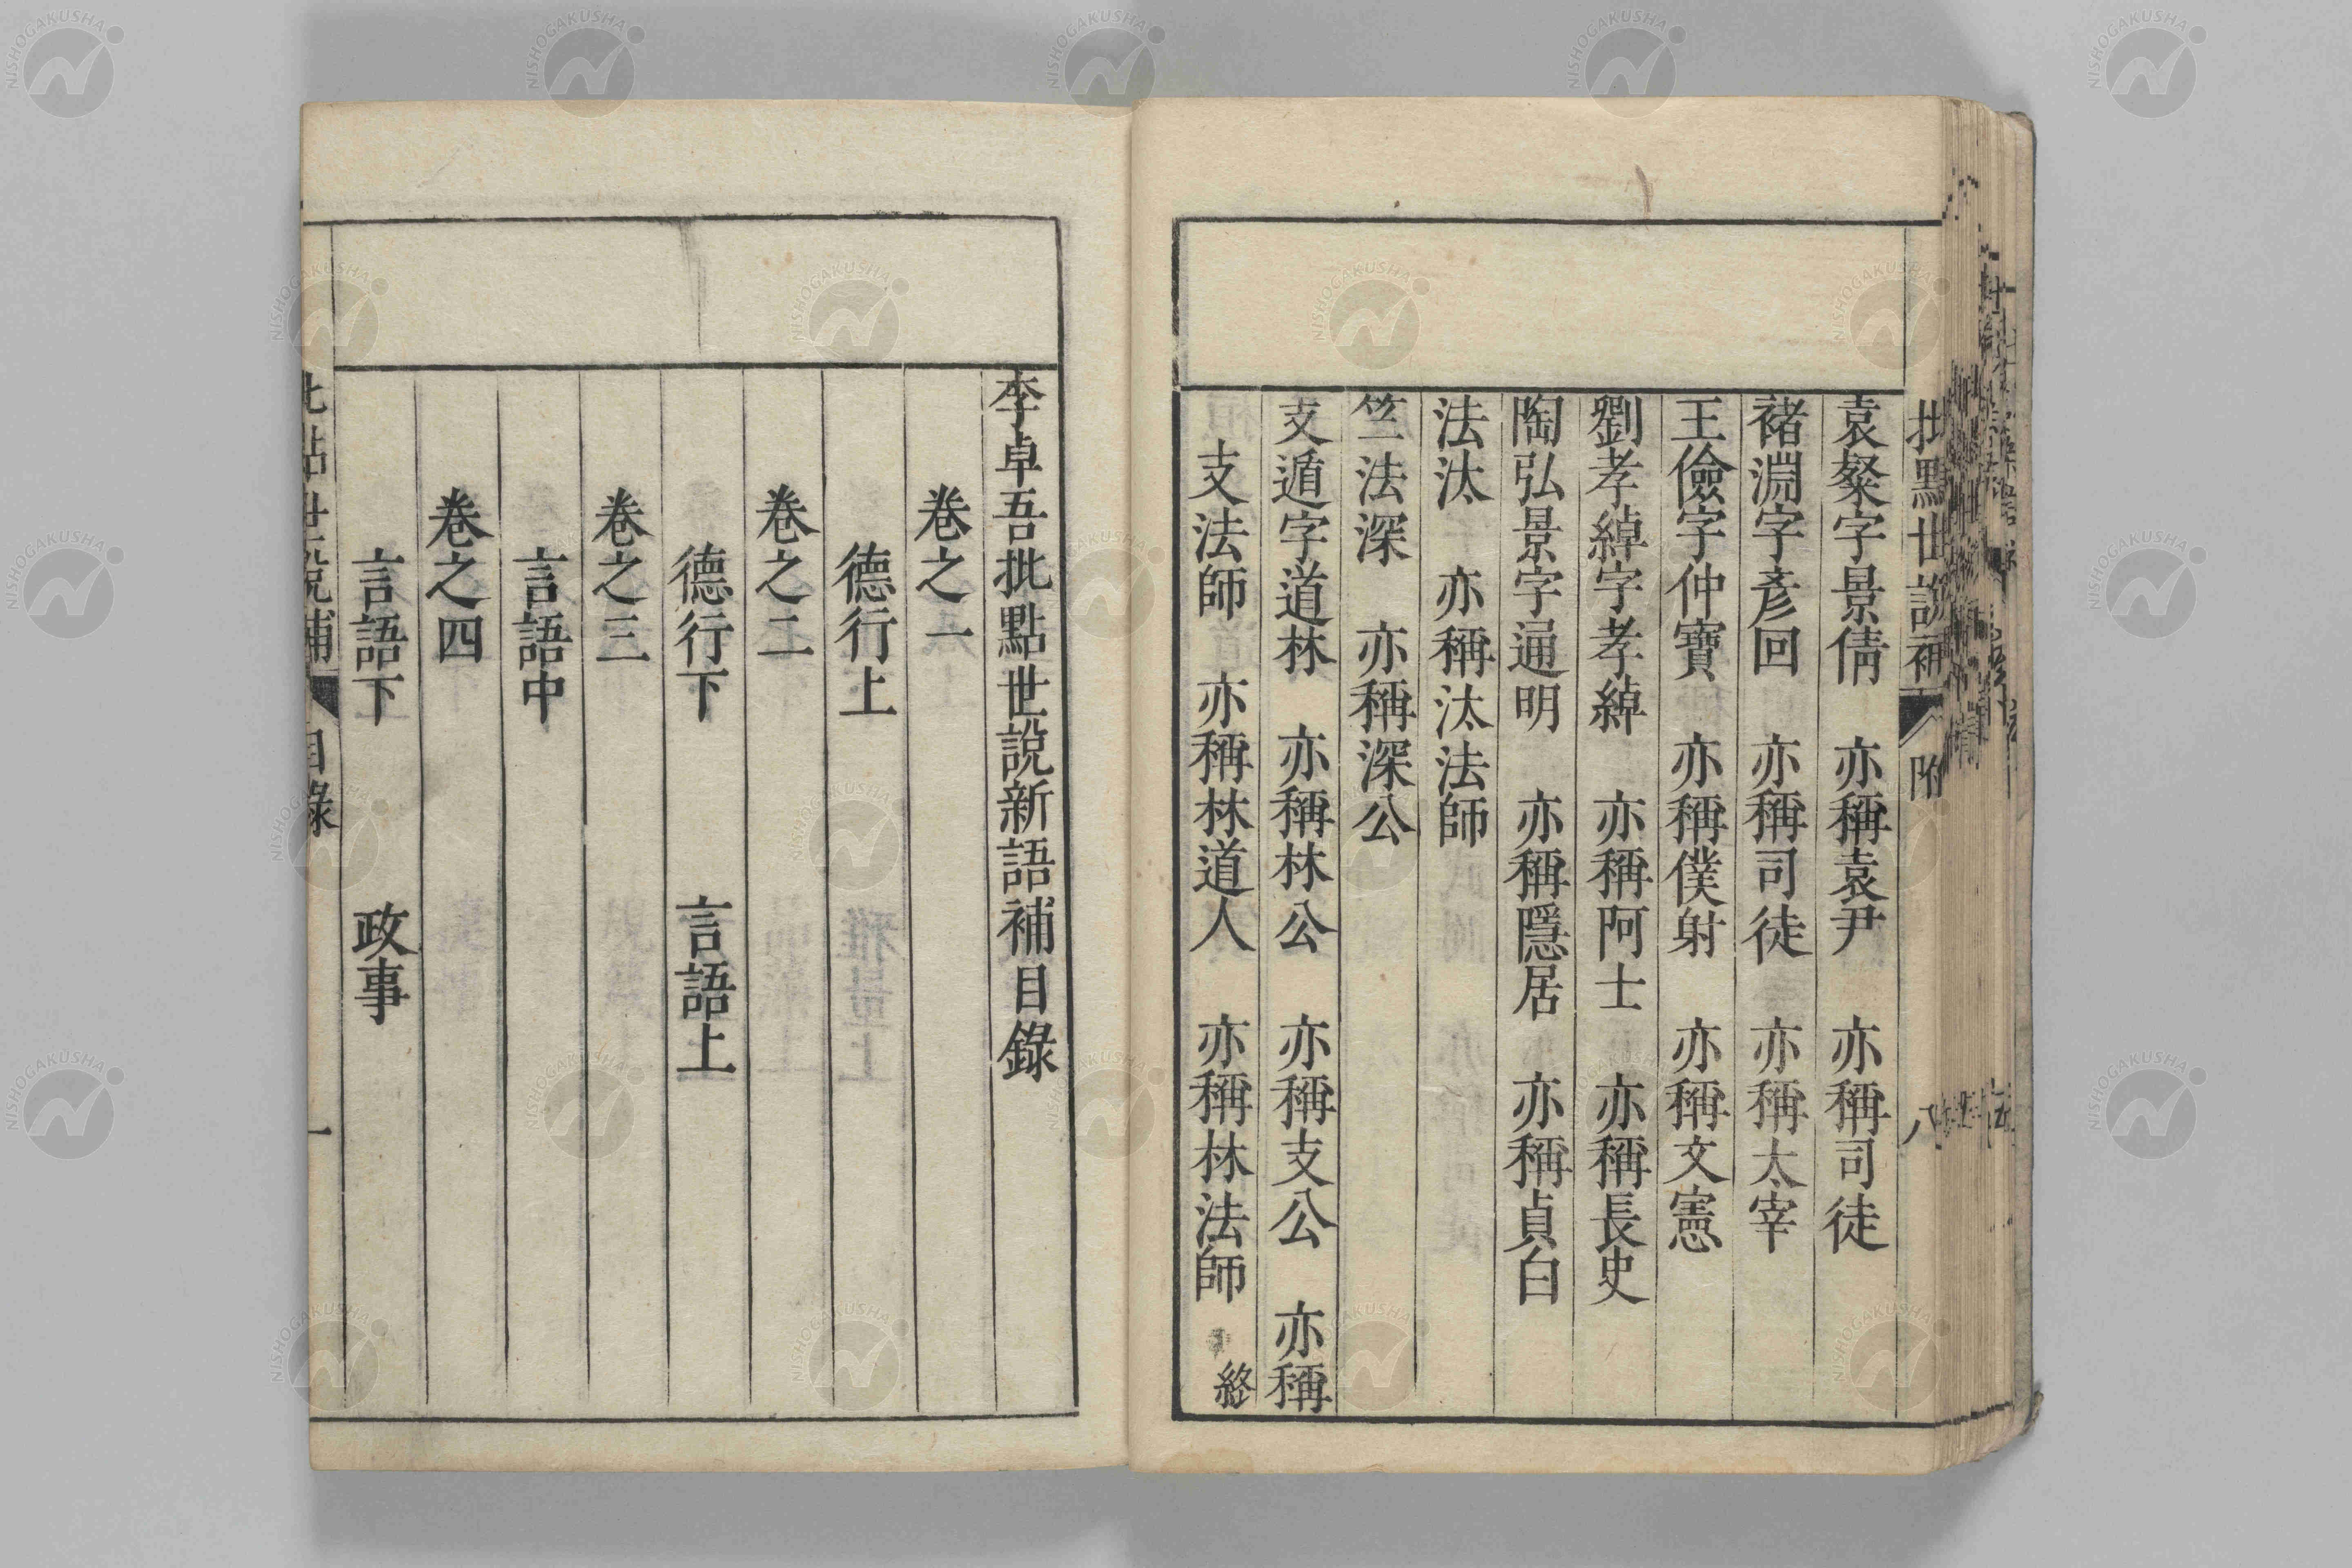 批點世說補 附 八
袁粲字景倩 亦稱袁尹 亦稱司徒
褚淵字彥回 亦稱司徒 亦稱太宰
王儉字仲寶 亦稱僕射 亦稱文憲
劉孝綽字孝綽 亦稱阿士 亦稱長史
陶弘景字通明 亦稱隱居 亦稱貞白
法汰 亦稱汰法師
竺法深 亦稱深公
支遁字道林 亦稱林公 亦稱支公 亦稱
支法師 亦稱林道人 亦稱林法師 終
李卓吾批點世說新語補目錄
卷之一
德行上
卷之二
德行下 言語上
卷之三
言語中
卷之四
言語下 政事
批點世說補 目錄 一
NISHOGAKUSHA